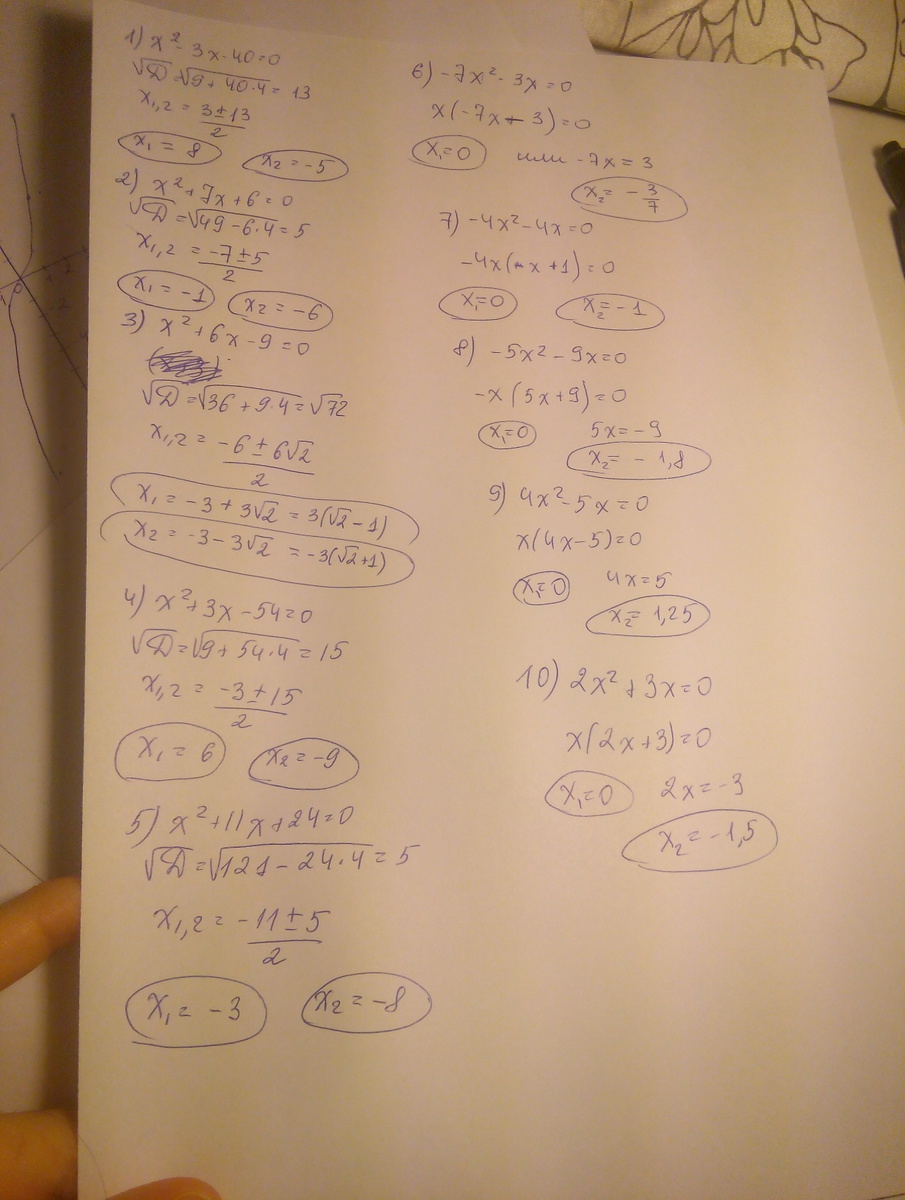 1) x² - 3x - 40 = 0
√D = √9 + 40·4 = 13
x₁,₂ = 3 ± 13 / 2
x₁ = 8 x₂ = -5
2) x² + 7x + 6 = 0
√D = √49 - 6·4 = 5
x₁,₂ = -7 ± 5 / 2
x₁ = -1 x₂ = -6
3) x² + 6x - 9 = 0
√D = √36 + 9·4 = √72
x₁,₂ = -6 ± 6√2 / 2
x₁ = -3 + 3√2 = 3(√2 - 1)
x₂ = -3 - 3√2 = -3(√2 + 1)
4) x² + 3x - 54 = 0
√D = √9 + 54·4 = 15
x₁,₂ = -3 ± 15 / 2
x₁ = 6 x₂ = -9
5) x² + 11x + 24 = 0
√D = √121 - 24·4 = 5
x₁,₂ = -11 ± 5 / 2
x₁ = -3 x₂ = -8
6) -7x² - 3x = 0
x(-7x - 3) = 0
x₁ = 0 или -7x = 3
x₂ = -3/7
7) -4x² - 4x = 0
-4x(x + 1) = 0
x₁ = 0 x₂ = -1
8) -5x² - 9x = 0
-x(5x + 9) = 0
x₁ = 0 5x = -9
x₂ = -1,8
9) 4x² - 5x = 0
x(4x - 5) = 0
x₁ = 0 4x = 5
x₂ = 1,25
10) 2x² + 3x = 0
x(2x + 3) = 0
x₁ = 0 2x = -3
x₂ = -1,5